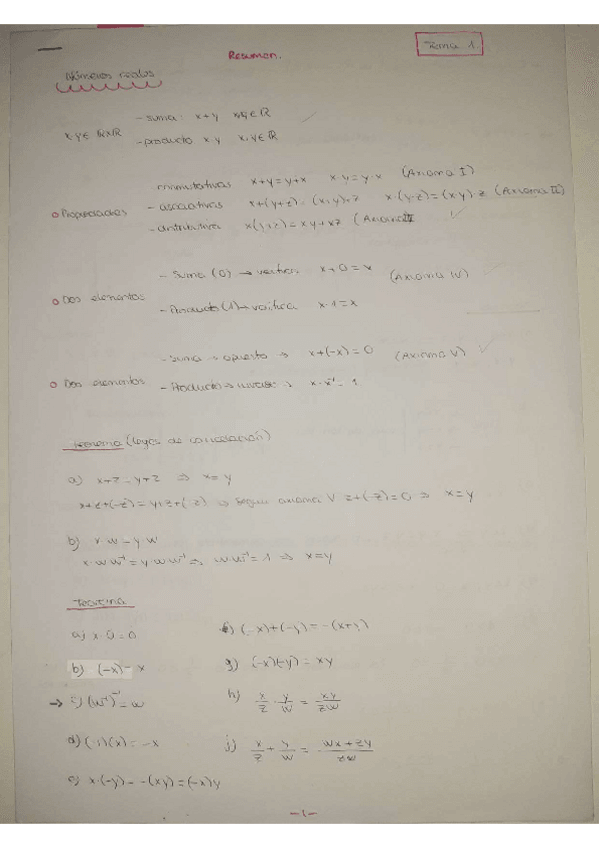 Resumen.
Tema 1
Números reales
x,y ∈ ℝxℝ
- suma: x+y x,y ∈ ℝ
- producto x·y x,y ∈ ℝ
Propiedades
conmutativas x+y=y+x x·y=y·x (Axioma I)
- asociativas x+(y+z)=(x+y)+z x·(y·z)=(x·y)·z (Axioma II)
- distributiva x(y+z)=xy+xz (Axioma III)
Dos elementos
- Suma (0) → verifica x+0=x (Axioma IV)
- Producto (1) → verifica x·1=x
Dos elementos
- Suma → opuesto → x+(-x)=0 (Axioma V)
- Producto → inverso → x·x⁻¹=1
Teorema (leyes de cancelación)
a) x+z=y+z ⇒ x=y
x+z+(-z)=y+z+(-z) ⇒ Según axioma V z+(-z)=0 ⇒ x=y
b) x·w=y·w
x·w·w⁻¹=y·w·w⁻¹ ⇒ w·w⁻¹=1 ⇒ x=y
Teorema
a) x·0=0
b) (-x)=x
→ c) (w⁻¹)⁻¹=w
d) (-1)(x)=-x
e) x·(-y)=-(xy)=(-x)y
f) (-x)+(-y)=-(x+y)
g) (-x)(-y)=xy
h) x/z · y/w = xy/zw
j) x/z + y/w = wx+zy/zw
-1-